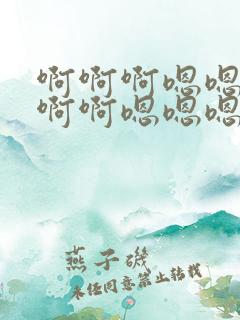 啊啊啊嗯嗯
啊啊嗯嗯嗯
燕子矶
未经同意禁止转载